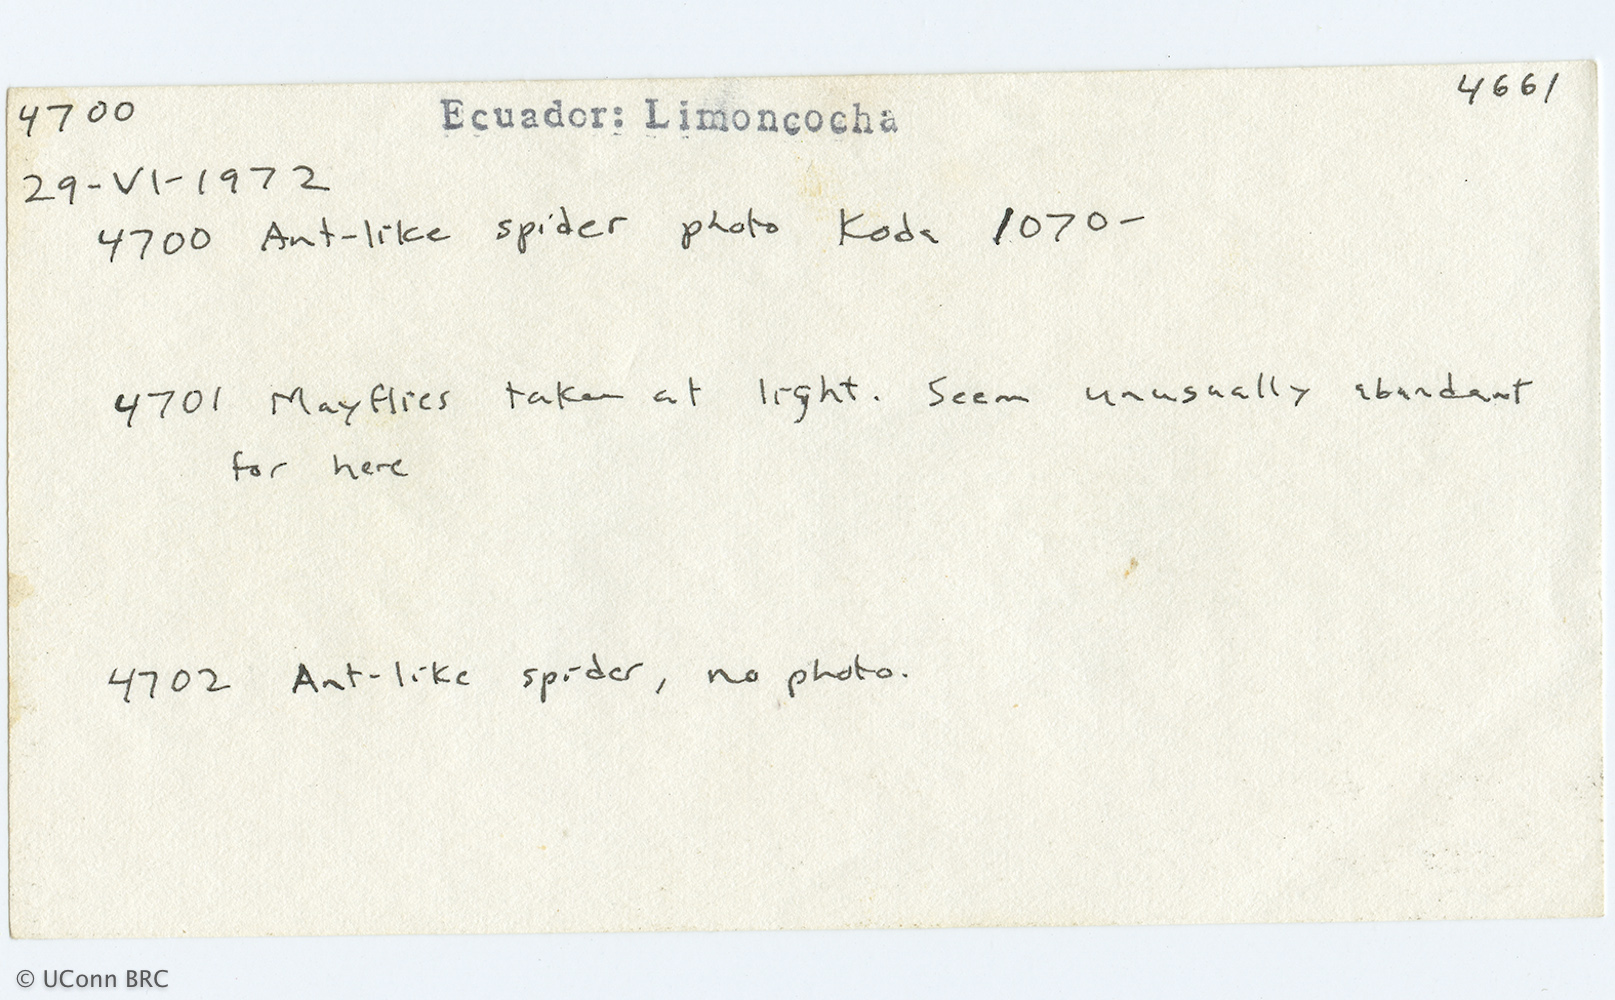 4700 Ecuador: Limoncocha 4661
29-VI-1972
4700 Ant-like spider photo Koda 1070-
4701 Mayflies taken at light. Seem unusually abundant
for here
4702 Ant-like spider, no photo.
© UConn BRC